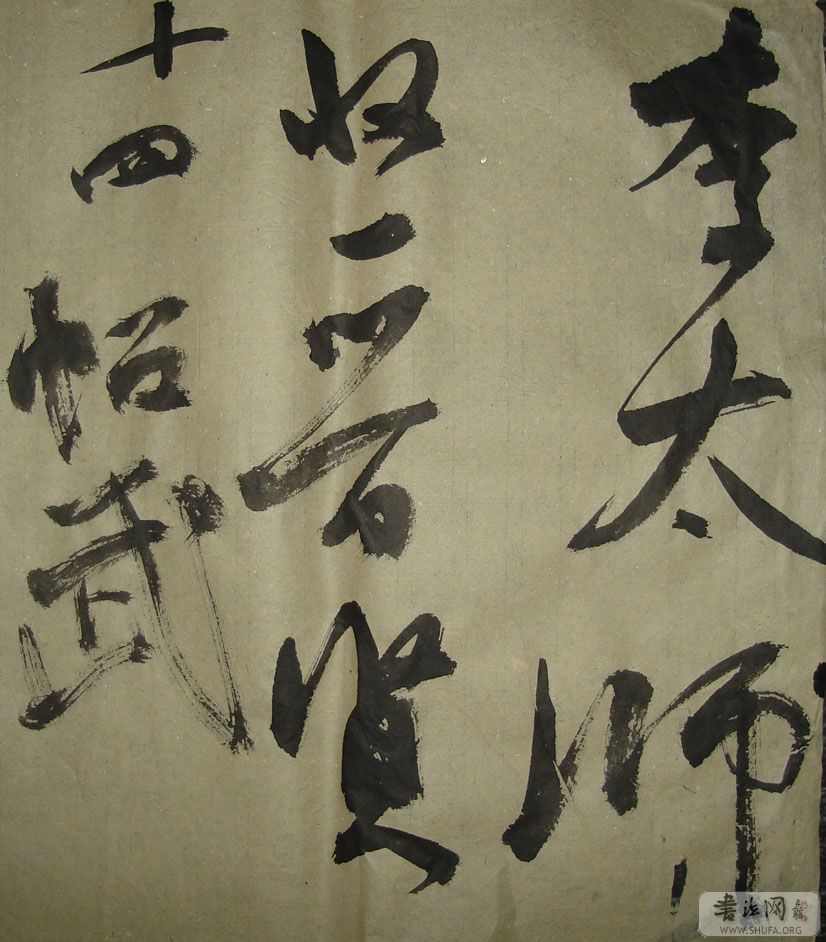 李太师
收一晋贤
十四帖武
书法网
WWW.SHUFA.ORG